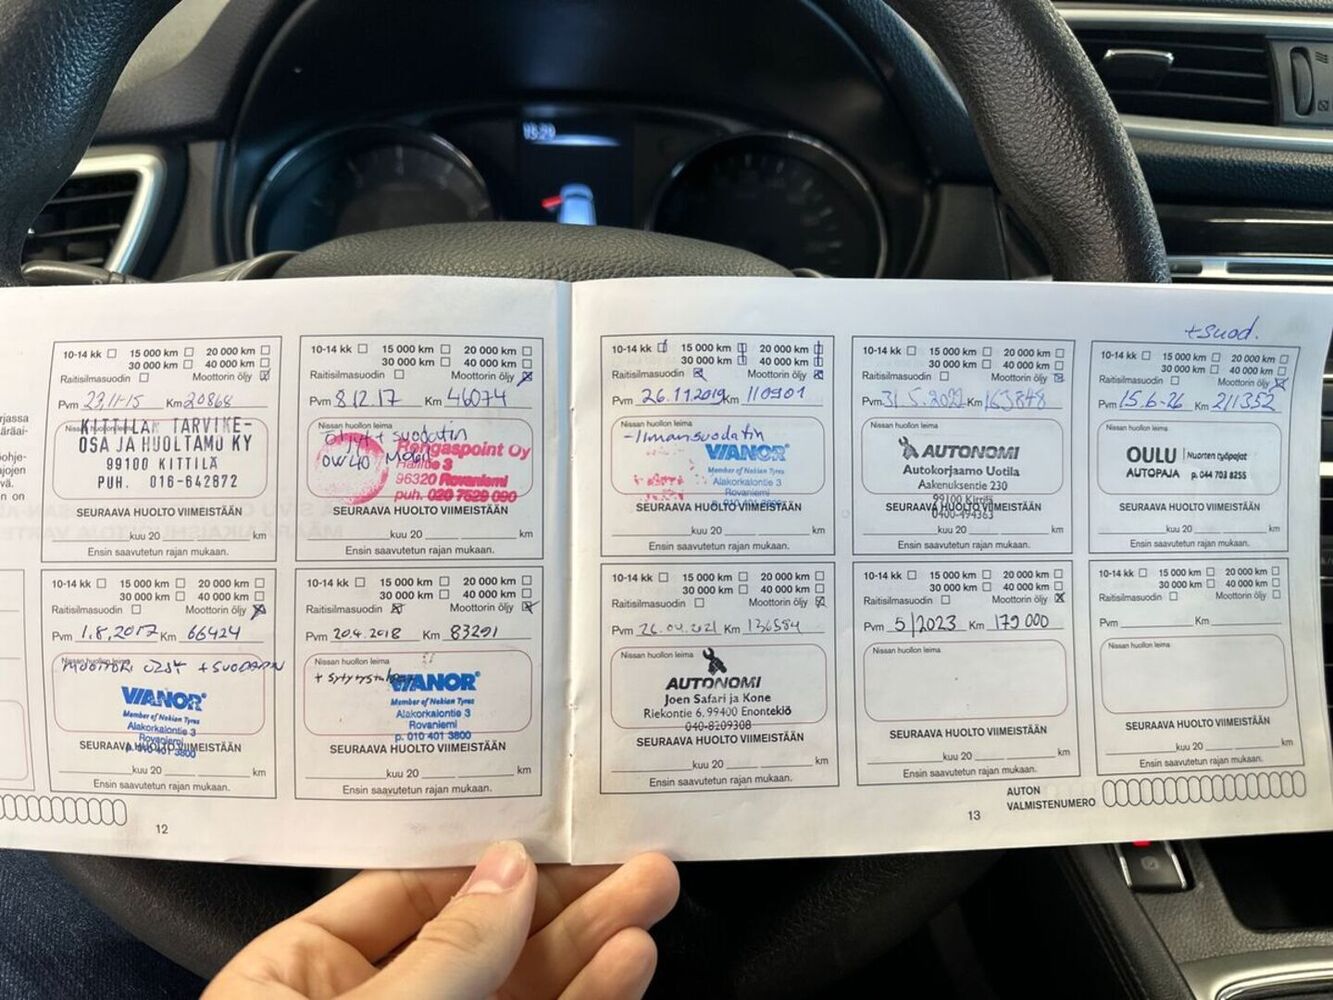 +suod.
10-14 kk 15 000 km 20 000 km
30 000 km 40 000 km
Raitisilmasuodin Moottorin öljy
Pvm 23.11-15 Km 20868
Nissan huollon leima
KITTILÄN TARVIKE-
OSA JA HUOLTAMO KY
99100 KITTILÄ
PUH. 016-642872
SEURAAVA HUOLTO VIIMEISTÄÄN
kuu 20 km
Ensin saavutetun rajan mukaan.
10-14 kk 15 000 km 20 000 km
30 000 km 40 000 km
Raitisilmasuodin Moottorin öljy
Pvm 8.12.17 Km 46074
Öljyt + suodatin
0W40 Mobil
Rengaspoint Oy
3
96320 Rovaniemi
puh. 020 7529 090
SEURAAVA HUOLTO VIIMEISTÄÄN
kuu 20 km
Ensin saavutetun rajan mukaan.
10-14 kk 15 000 km 20 000 km
30 000 km 40 000 km
Raitisilmasuodin Moottorin öljy
Pvm 26.11.2019 Km 110901
Nissan huollon leima
-Ilmansuodatin
VIANOR
Member of Nokian Tyres
Alakorkalontie 3
Rovaniemi
p. 010 401 3800
SEURAAVA HUOLTO VIIMEISTÄÄN
kuu 20 km
Ensin saavutetun rajan mukaan.
10-14 kk 15 000 km 20 000 km
30 000 km 40 000 km
Raitisilmasuodin Moottorin öljy
Pvm 31.5.2022 Km 163848
Nissan huollon leima
AUTONOMI
Autokorjaamo Uotila
Aakenuksentie 230
99100 Kittilä
0400-494363
SEURAAVA HUOLTO VIIMEISTÄÄN
kuu 20 km
Ensin saavutetun rajan mukaan.
10-14 kk 15 000 km 20 000 km
30 000 km 40 000 km
Raitisilmasuodin Moottorin öljy
Pvm 15.6-26 Km 211352
Nissan huollon leima
OULU Nuorten työpajat
AUTOPAJA p. 044 703 8255
SEURAAVA HUOLTO VIIMEISTÄÄN
kuu 20 km
Ensin saavutetun rajan mukaan.
10-14 kk 15 000 km 20 000 km
30 000 km 40 000 km
Raitisilmasuodin Moottorin öljy
Pvm 1.8.2017 Km 66424
Nissan huollon leima
MOOTTORI ÖLJY + SUODATIN
VIANOR
Member of Nokian Tyres
Alakorkalontie 3
Rovaniemi
p. 010 401 3800
SEURAAVA HUOLTO VIIMEISTÄÄN
kuu 20 km
Ensin saavutetun rajan mukaan.
10-14 kk 15 000 km 20 000 km
30 000 km 40 000 km
Raitisilmasuodin Moottorin öljy
Pvm 20.4.2018 Km 83291
Nissan huollon leima
VIANOR
Member of Nokian Tyres
Alakorkalontie 3
Rovaniemi
p. 010 401 3800
SEURAAVA HUOLTO VIIMEISTÄÄN
kuu 20 km
Ensin saavutetun rajan mukaan.
10-14 kk 15 000 km 20 000 km
30 000 km 40 000 km
Raitisilmasuodin Moottorin öljy
Pvm 26.04.2021 Km 136584
Nissan huollon leima
AUTONOMI
Joen Safari ja Kone
Riekontie 6, 99400 Enontekiö
040-8209308
SEURAAVA HUOLTO VIIMEISTÄÄN
kuu 20 km
Ensin saavutetun rajan mukaan.
10-14 kk 15 000 km 20 000 km
30 000 km 40 000 km
Raitisilmasuodin Moottorin öljy
Pvm 5/2023 Km 179 000
Nissan huollon leima
SEURAAVA HUOLTO VIIMEISTÄÄN
kuu 20 km
Ensin saavutetun rajan mukaan.
10-14 kk 15 000 km 20 000 km
30 000 km 40 000 km
Raitisilmasuodin Moottorin öljy
Pvm Km
Nissan huollon leima
SEURAAVA HUOLTO VIIMEISTÄÄN
kuu 20 km
Ensin saavutetun rajan mukaan.
AUTON
VALMISTENUMERO
12
13